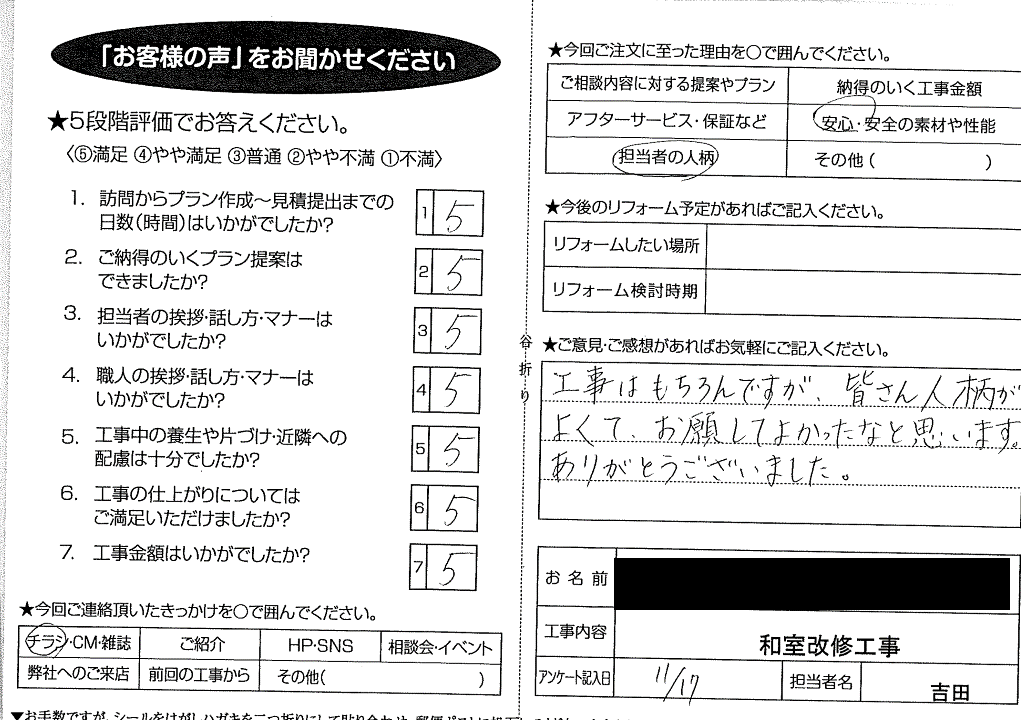 「お客様の声」をお聞かせください
★5段階評価でお答えください。
〈⑤満足 ④やや満足 ③普通 ②やや不満 ①不満〉
1. 訪問からプラン作成～見積提出までの
日数(時間)はいかがでしたか?
1 5
2. ご納得のいくプラン提案は
できましたか?
2 5
3. 担当者の挨拶・話し方・マナーは
いかがでしたか?
3 5
4. 職人の挨拶・話し方・マナーは
いかがでしたか?
4 5
5. 工事中の養生や片づけ・近隣への
配慮は十分でしたか?
5 5
6. 工事の仕上がりについては
ご満足いただけましたか?
6 5
7. 工事金額はいかがでしたか?
7 5
★今回ご連絡頂いたきっかけを〇で囲んでください。
チラシ・CM・雑誌 ご紹介 HP・SNS 相談会・イベント
弊社へのご来店 前回の工事から その他( )
谷折り
★今回ご注文に至った理由を〇で囲んでください。
ご相談内容に対する提案やプラン 納得のいく工事金額
アフターサービス・保証など 安心・安全の素材や性能
担当者の人柄 その他( )
★今後のリフォーム予定があればご記入ください。
リフォームしたい場所
リフォーム検討時期
★ご意見・ご感想があればお気軽にご記入ください。
工事はもちろんですが、皆さん人柄が
よくて、お願してよかったなと思います。
ありがとうございました。
お名前
工事内容 和室改修工事
アンケート記入日 11/17 担当者名 吉田